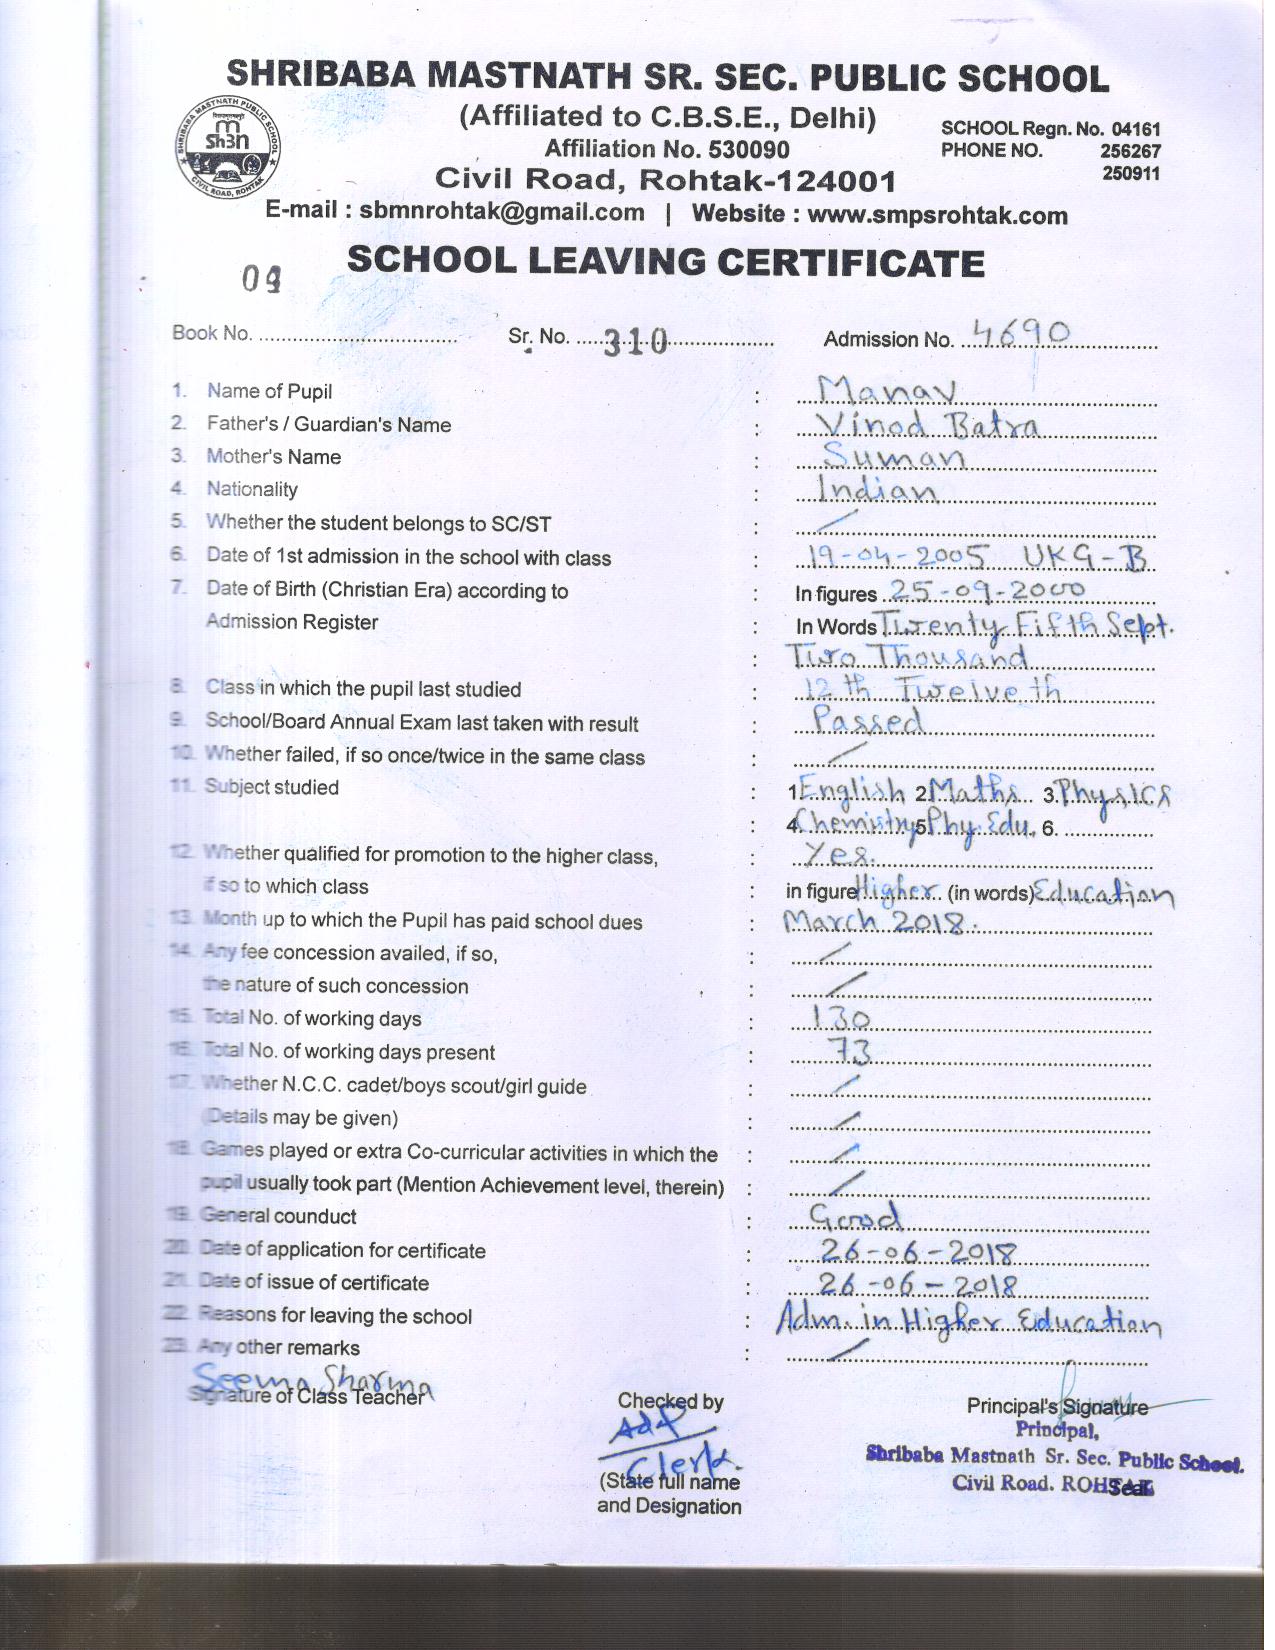 SHRIBABA MASTNATH SR. SEC. PUBLIC SCHOOL
(Affiliated to C.B.S.E., Delhi)
Affiliation No. 530090
SCHOOL Regn. No. 04161
PHONE NO. 256267
250911
SHRIBABA MASTNATH PUBLIC SCHOOL
Sh3n
CIVIL ROAD, ROHTAK
Civil Road, Rohtak-124001
E-mail : sbmnrohtak@gmail.com | Website : www.smpsrohtak.com
SCHOOL LEAVING CERTIFICATE
04
Book No. Sr. No. 310 Admission No. 4690
1. Name of Pupil : Manav
2. Father's / Guardian's Name : Vinod Batra
3. Mother's Name : Suman
4. Nationality : Indian
5. Whether the student belongs to SC/ST : /
6. Date of 1st admission in the school with class : 19-04-2005 UKG-B
7. Date of Birth (Christian Era) according to : In figures 25-09-2000
Admission Register : In Words Twenty Fifth Sept.
: Two Thousand
8. Class in which the pupil last studied : 12th Twelveth
9. School/Board Annual Exam last taken with result : Passed
10. Whether failed, if so once/twice in the same class : /
11. Subject studied : 1 English 2 Maths 3. Physics
: 4. Chemistry 5 Phy. Edu. 6.
12. Whether qualified for promotion to the higher class, : Yes.
if so to which class : in figure Higher (in words) Education
13. Month up to which the Pupil has paid school dues : March 2018.
14. Any fee concession availed, if so, : /
the nature of such concession : /
15. Total No. of working days : 130
16. Total No. of working days present : 73
17. Whether N.C.C. cadet/boys scout/girl guide : /
(Details may be given) : /
18. Games played or extra Co-curricular activities in which the : /
pupil usually took part (Mention Achievement level, therein) : /
19. General counduct : Good
20. Date of application for certificate : 26-06-2018
21. Date of issue of certificate : 26-06-2018
22. Reasons for leaving the school : Adm. in Higher Education
23. Any other remarks : /
Seema Sharma
Signature of Class Teacher
Checked by
Clerk.
(State full name
and Designation
Principal's Signature
Principal,
Shribaba Mastnath Sr. Sec. Public School.
Civil Road. ROHTAK
Seal